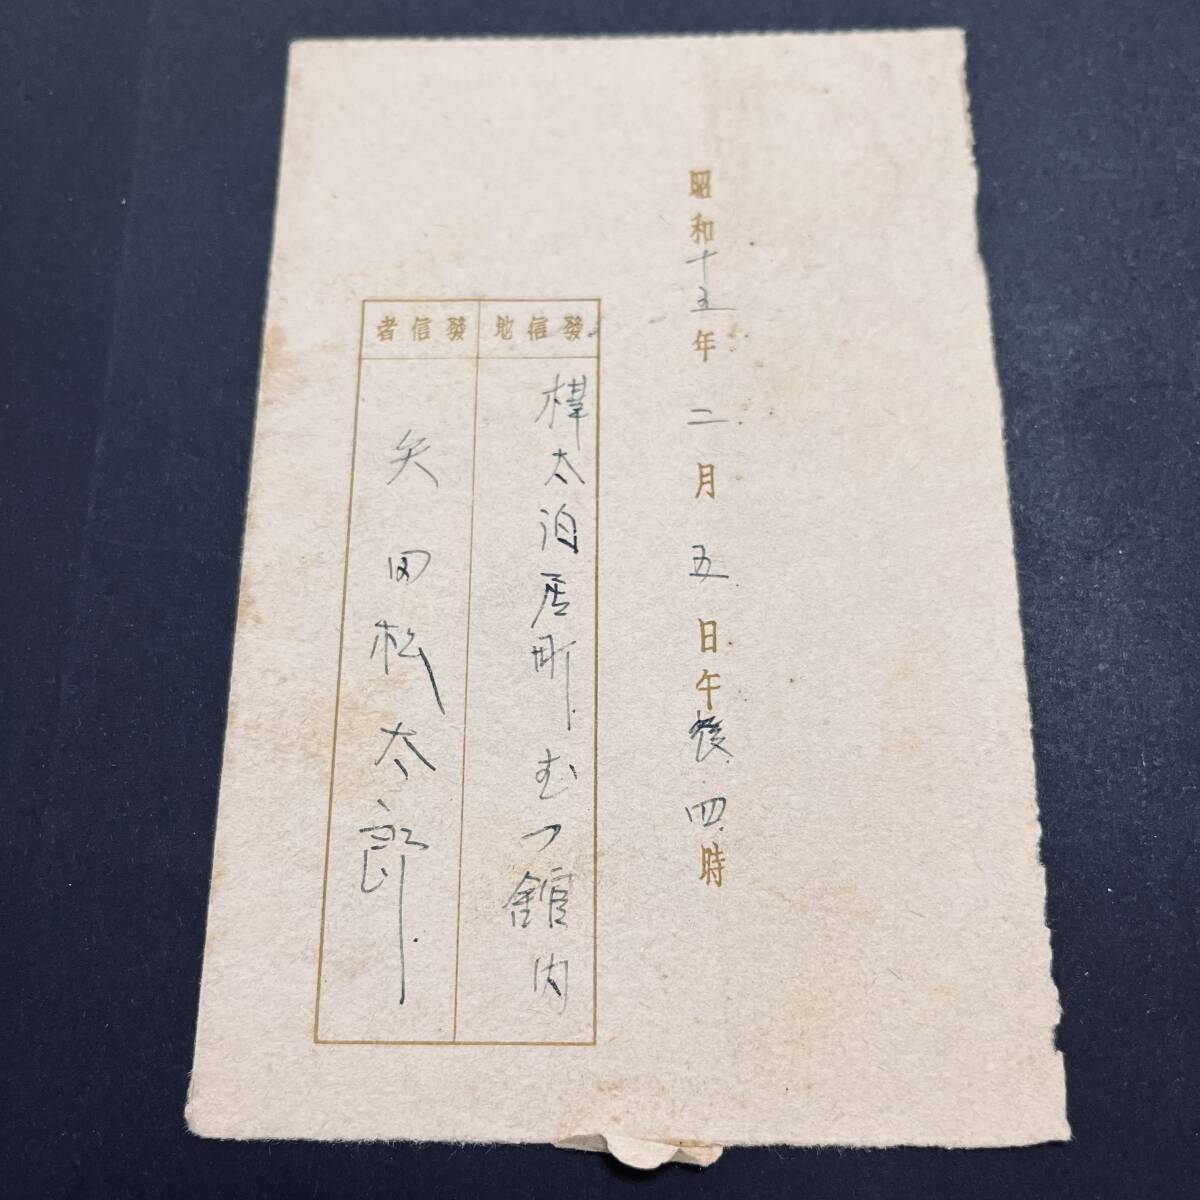 昭和十五年二月五日午後四時
發信地
樺太泊居町むつ館内
發信者
矢田松太郎